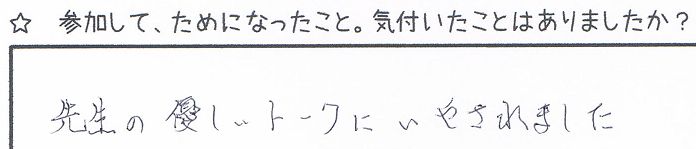 ☆ 参加して、ためになったこと。気付いたことはありましたか?
先生の優しいトークにいやされました